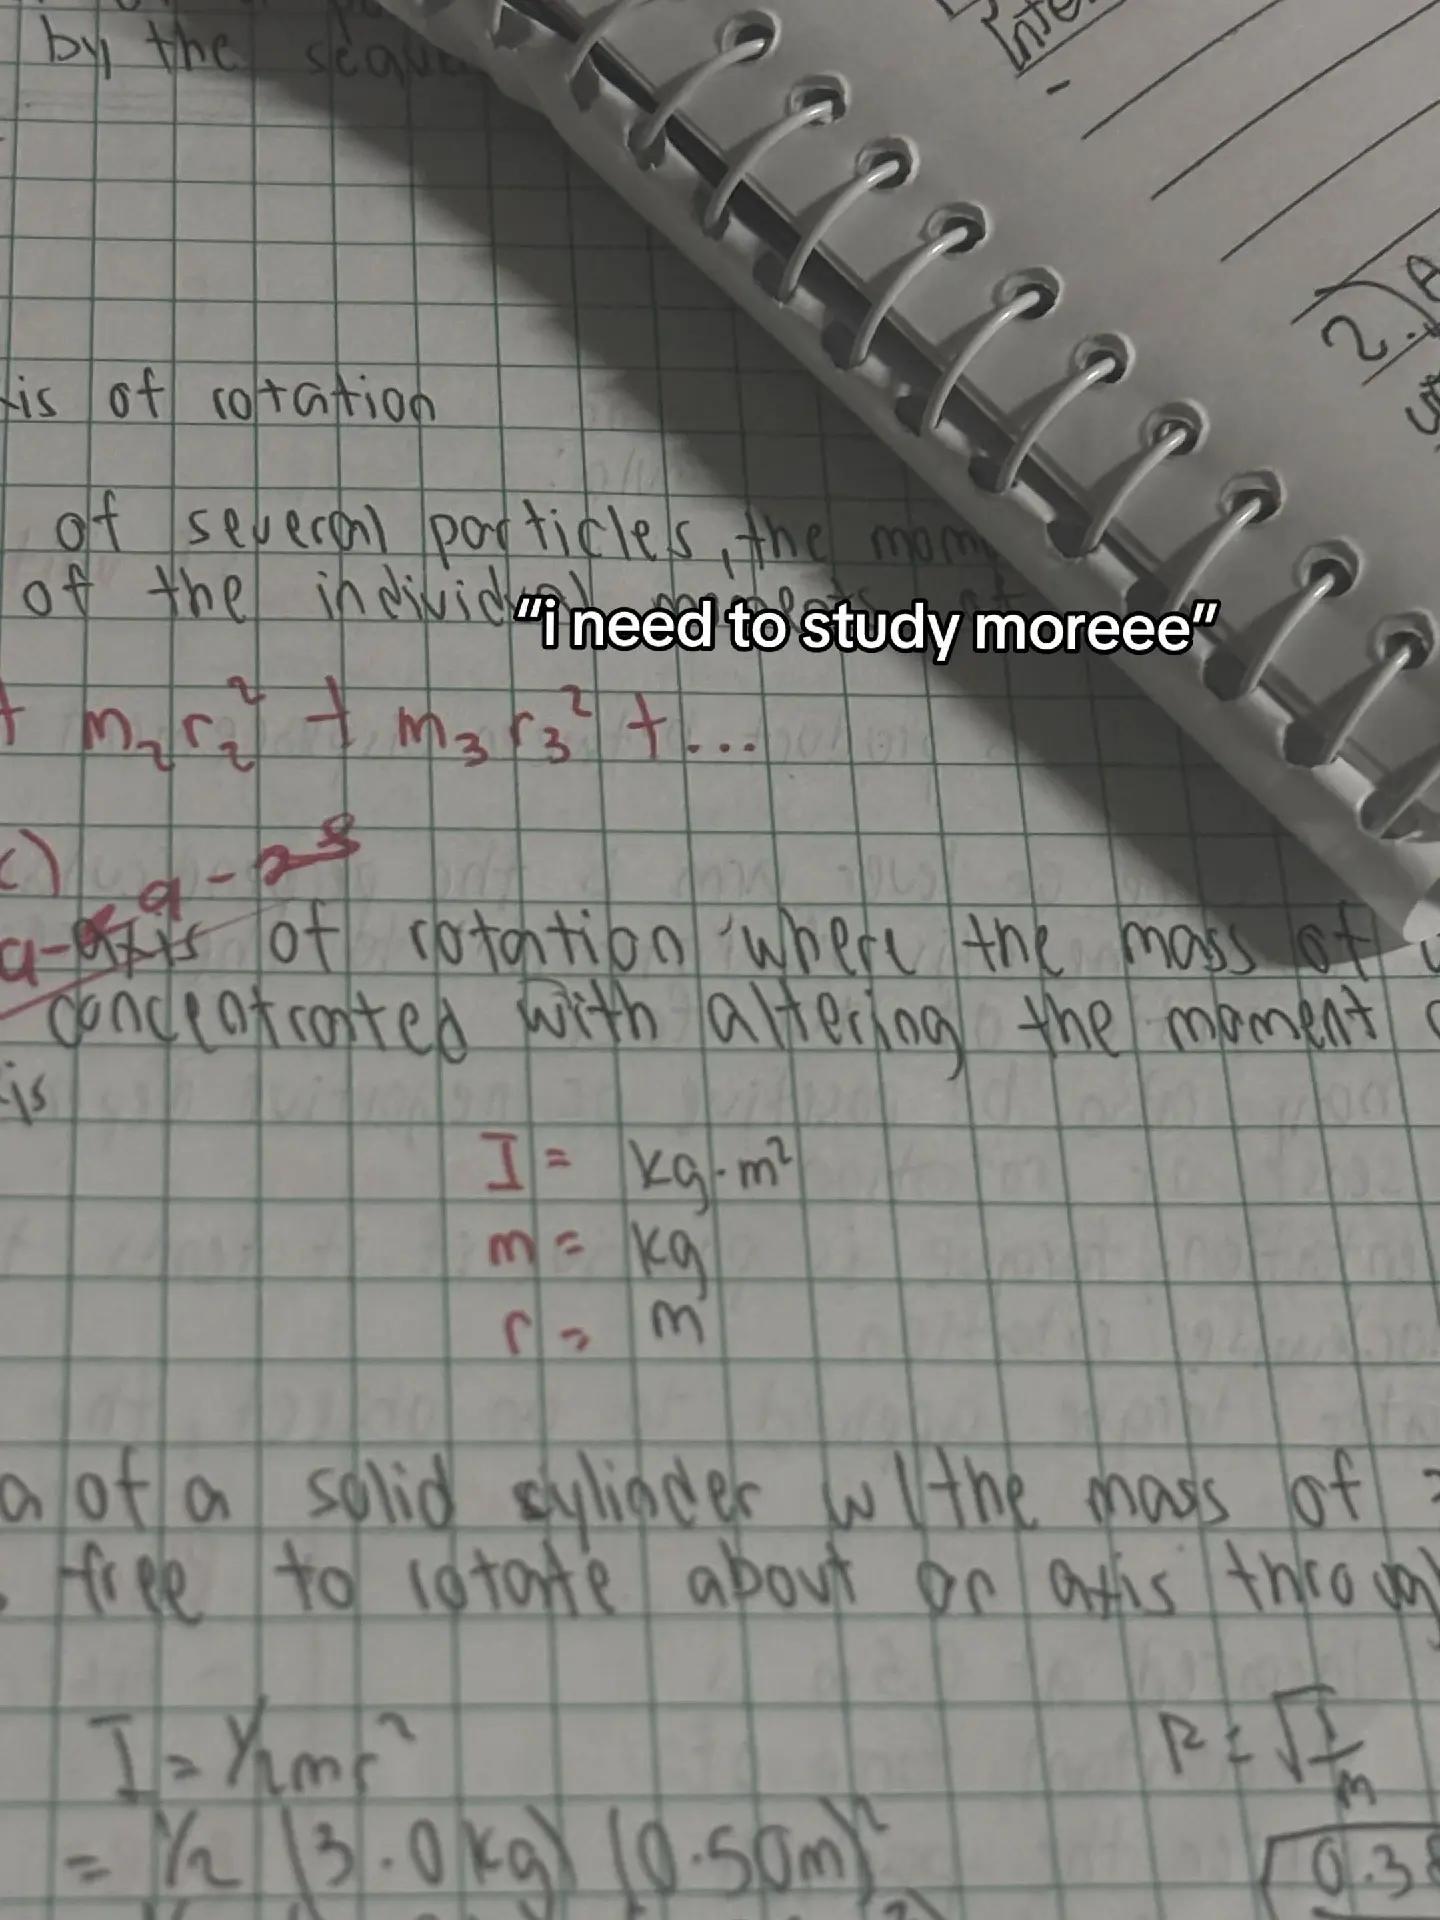 by the
Inte
-
2.)
is of rotation
of several particles, the mom
of the individual moments of
"i need to study moreee"
+ m₂r₂² + m₃r₃² + ...
c)
a - 23
a-axis of rotation where the mass of
concentrated with altering the moment
is
I = kg·m²
m = kg
r = m
a of a solid cylinder w/ the mass of
free to rotate about an axis throug
I = 1/2mr²
= 1/2 (3.0kg) (0.50m)²
R = √I/m
0.38